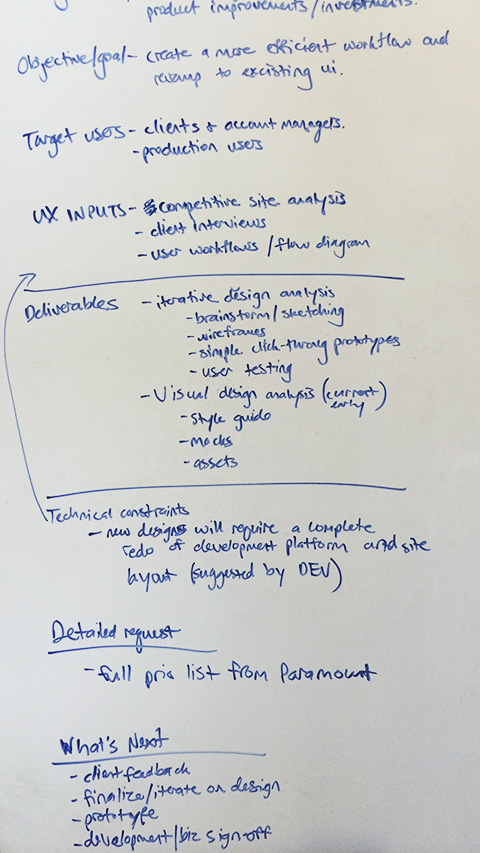 product improvements/investments.
Objective/goal - create a more efficient workflow and
revamp to excisting ui.
Target users - clients & account managers.
- production users
UX INPUTS - competitive site analysis
- client interviews
- user workflows / flow diagram
Deliverables - iterative design analysis
- brainstorm/sketching
- wireframes
- simple click-throug prototypes
- user testing
- Visual design analysis (current early)
- style guide
- mocks
- assets
Technical constraints
- new designs will require a complete
redo of development platform and site
layout (suggested by DEV)
Detailed request
- full list from Paramount
What's Next
- client feedback
- finalize/iterate on design
- prototype
- development/biz sign-off